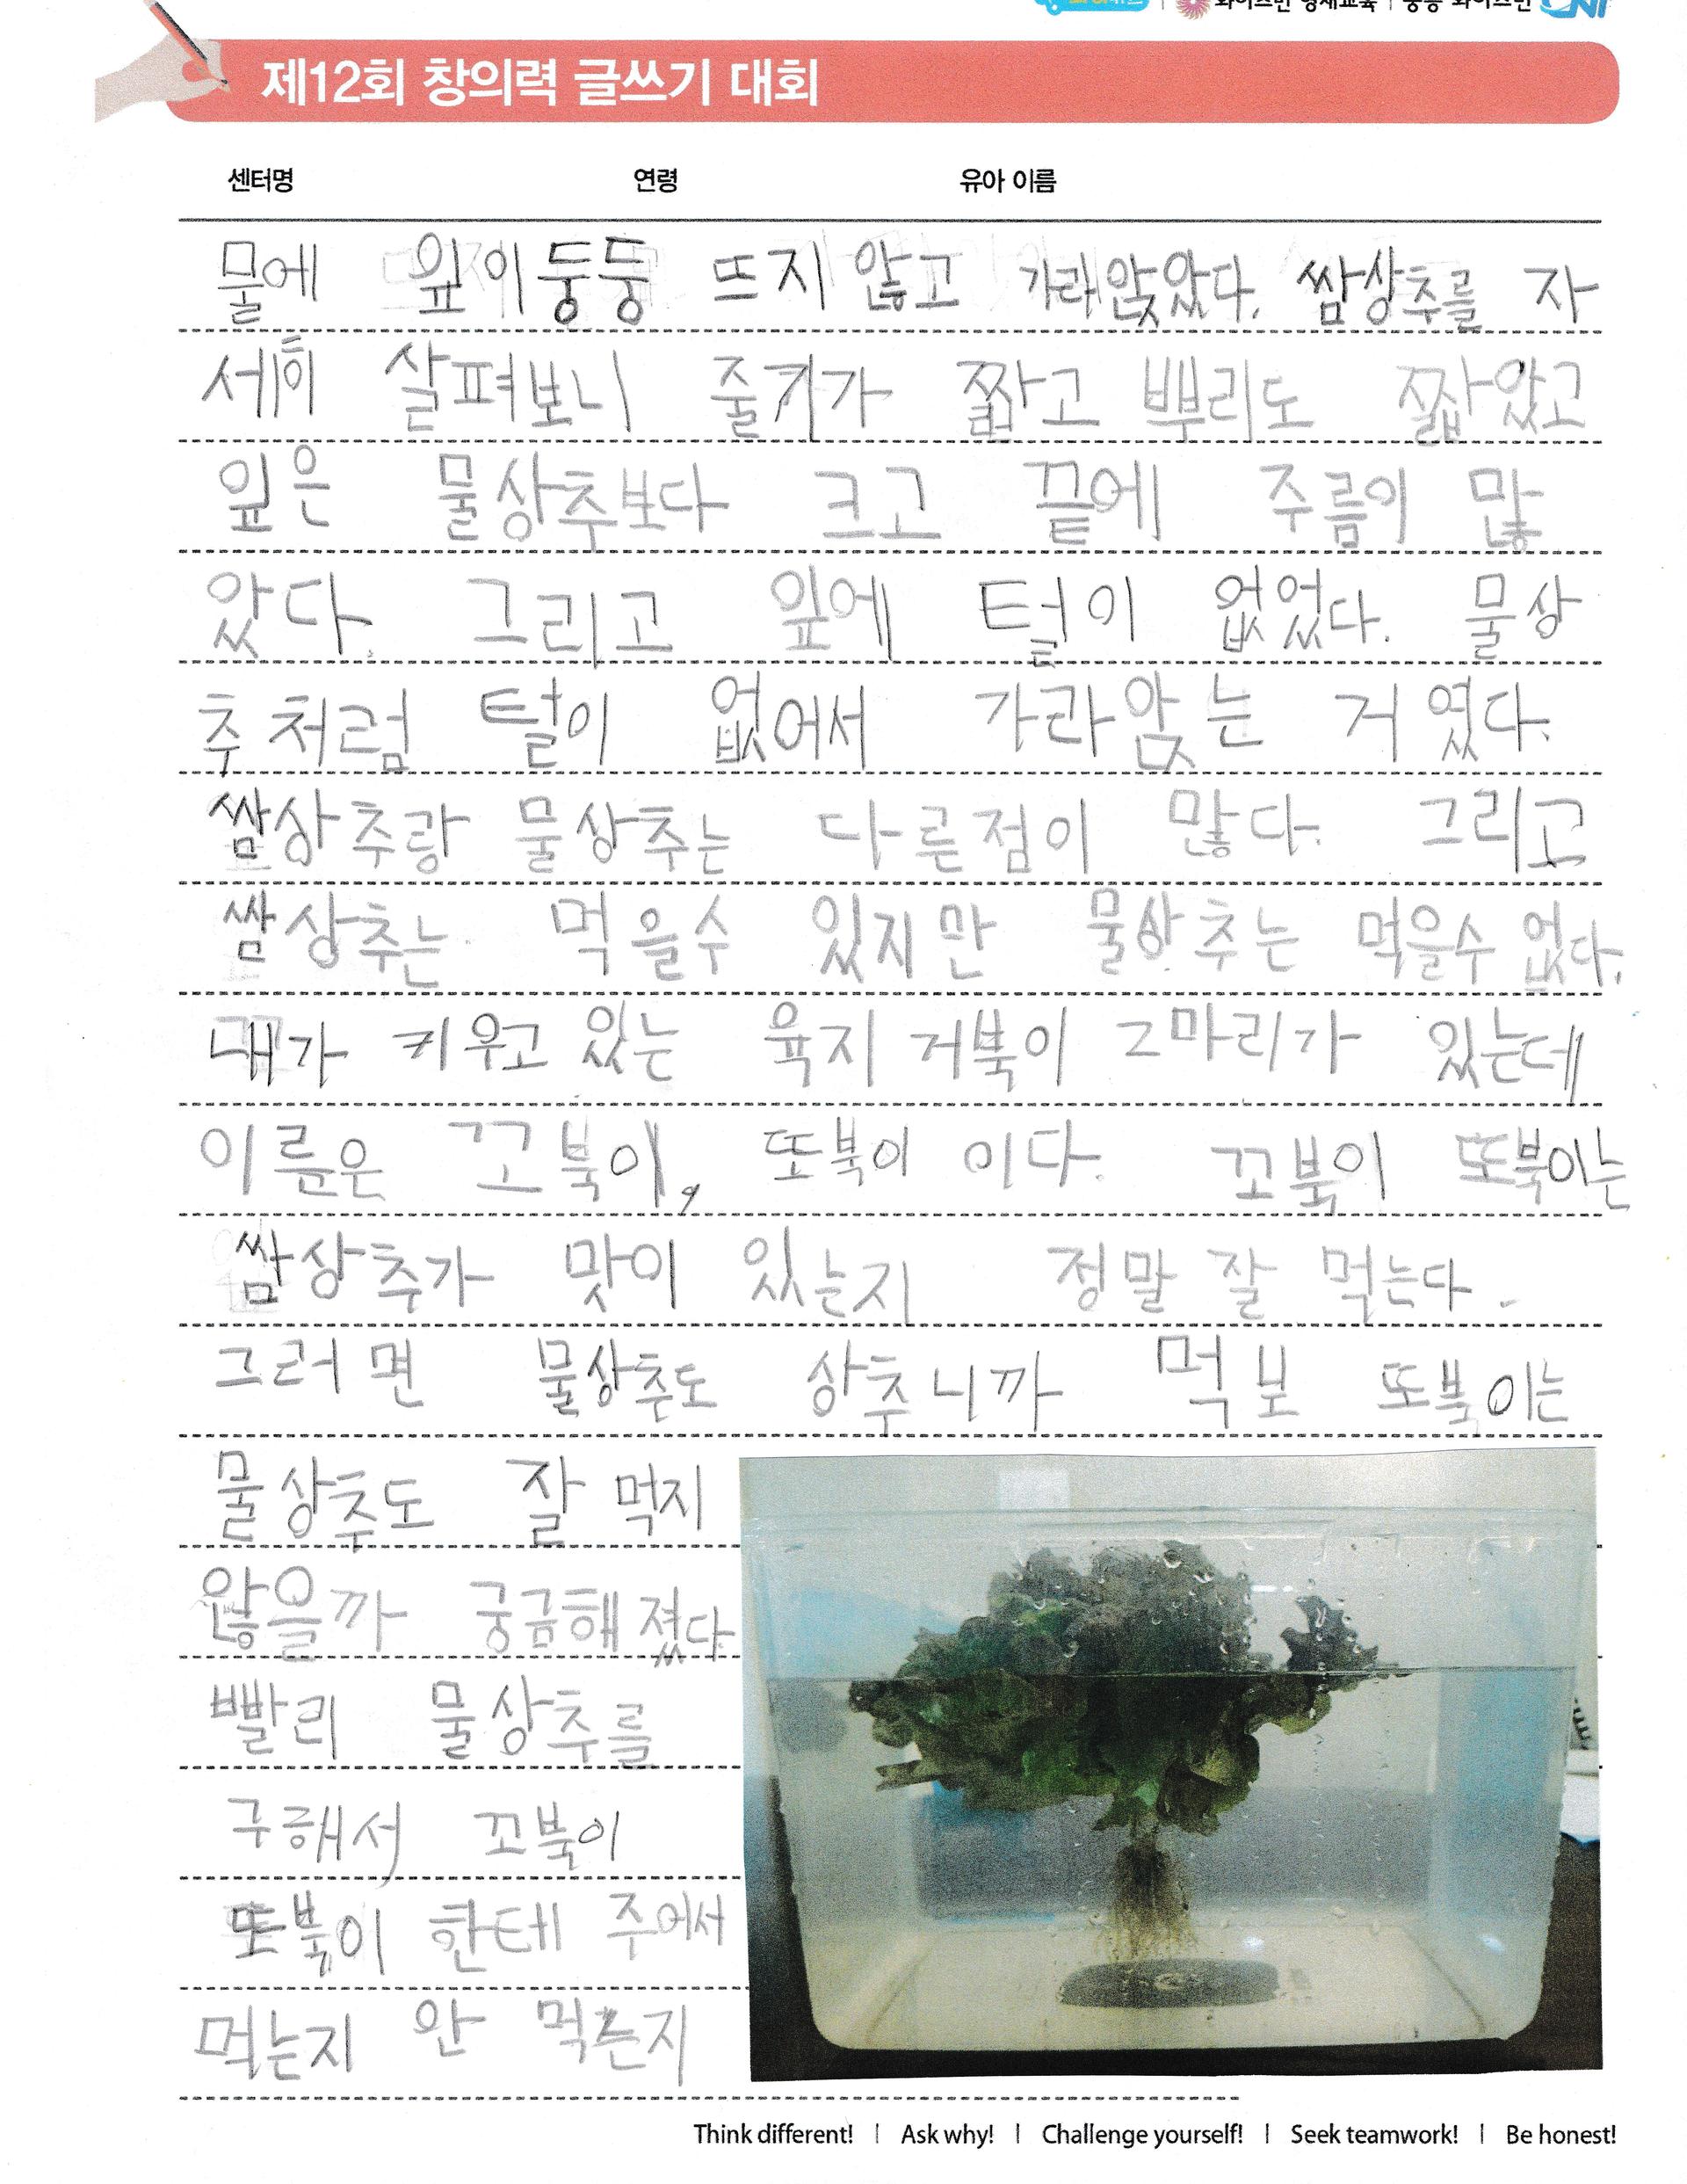 와이즈만 영재교육 | 중등 와이즈만 CNI
제12회 창의력 글쓰기 대회
센터명 연령 유아 이름
물에 잎이 둥둥 뜨지 않고 가라앉았다. 쌈상추를 자
세히 살펴보니 줄기가 짧고 뿌리도 짧았고
잎은 물상추보다 크고 끝에 주름이 많
았다. 그리고 잎에 털이 없었다. 물상
추처럼 털이 없어서 가라앉는 거 였다.
쌈상추랑 물상추는 다른점이 많다. 그리고
쌈상추는 먹을수 있지만 물상추는 먹을수 없다.
내가 키우고 있는 육지 거북이 2마리가 있는데
이름은 꼬북이, 또북이 이다. 꼬북이 또북이는
쌈상추가 맛이 있는지 정말 잘 먹는다.
그러면 물상추도 상추니까 먹보 또북이는
물상추도 잘 먹지
않을까 궁금해졌다
빨리 물상추를
구해서 꼬북이
또북이 한테 주어서
먹는지 안 먹는지
Think different! | Ask why! | Challenge yourself! | Seek teamwork! | Be honest!